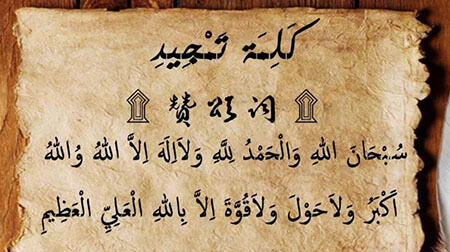 كَلِمَة تَمْجِيدِ
۩ 赞颂词 ۩
سُبْحَانَ اللهِ وَالْحَمْدُ لِلَّهِ وَلاَاِلَهَ اِلاَّ اللهُ وُاللهُ
أَكْبَرُ وَلاَحَوْلَ وَلاَقُوَّةَ اِلاَّ بِاللهِ الْعَلِيِّ الْعَظِيمِ